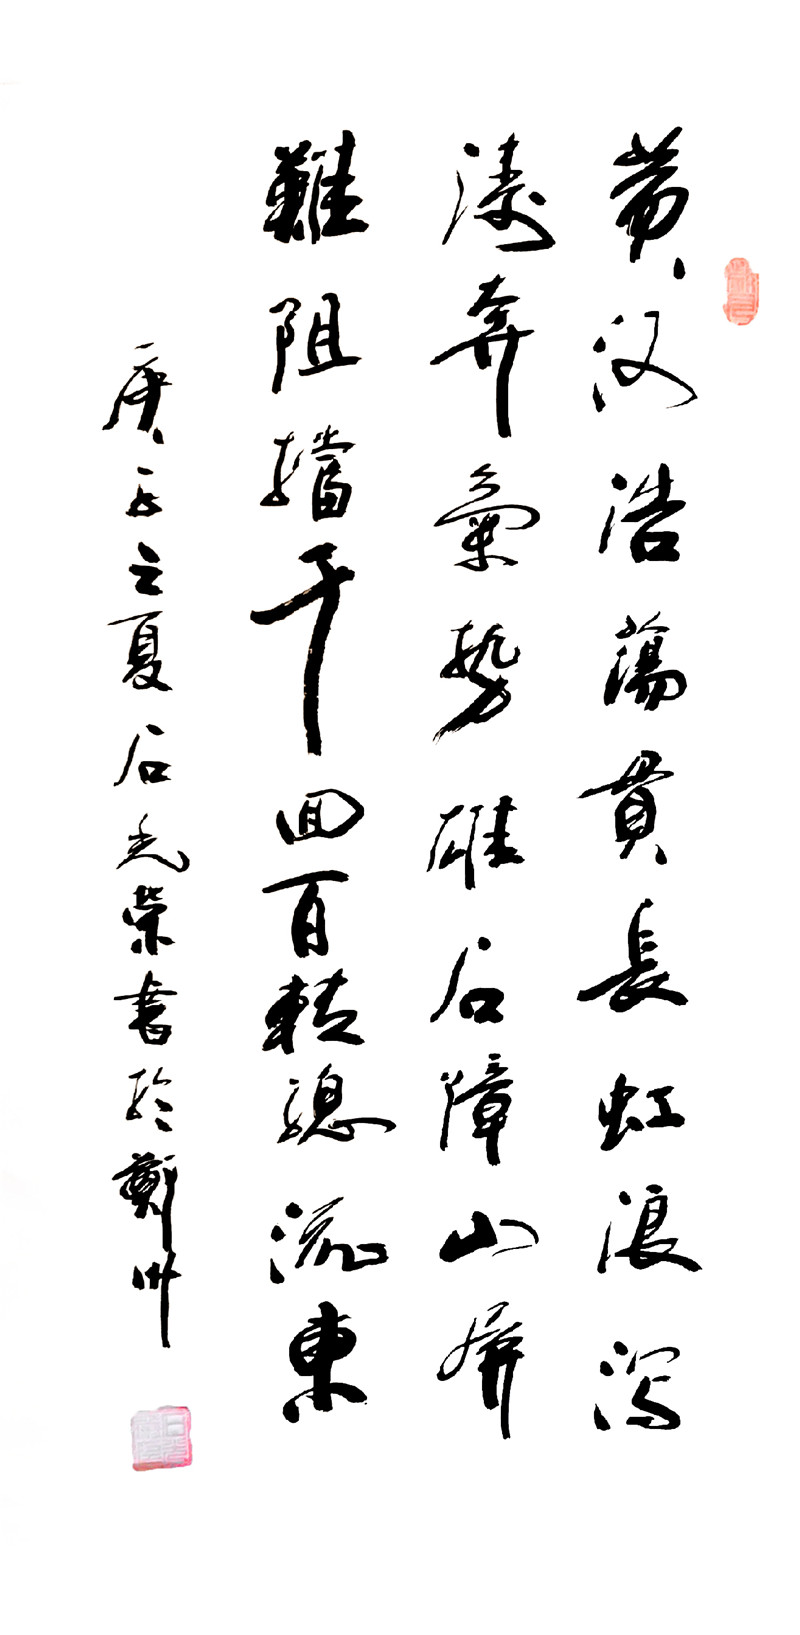 黄河浩蕩貫長虹浪瀉
濤奔氣勢雄石障山屏
難阻擋千回百轉總流東
庚子立夏石光榮書於鄭州